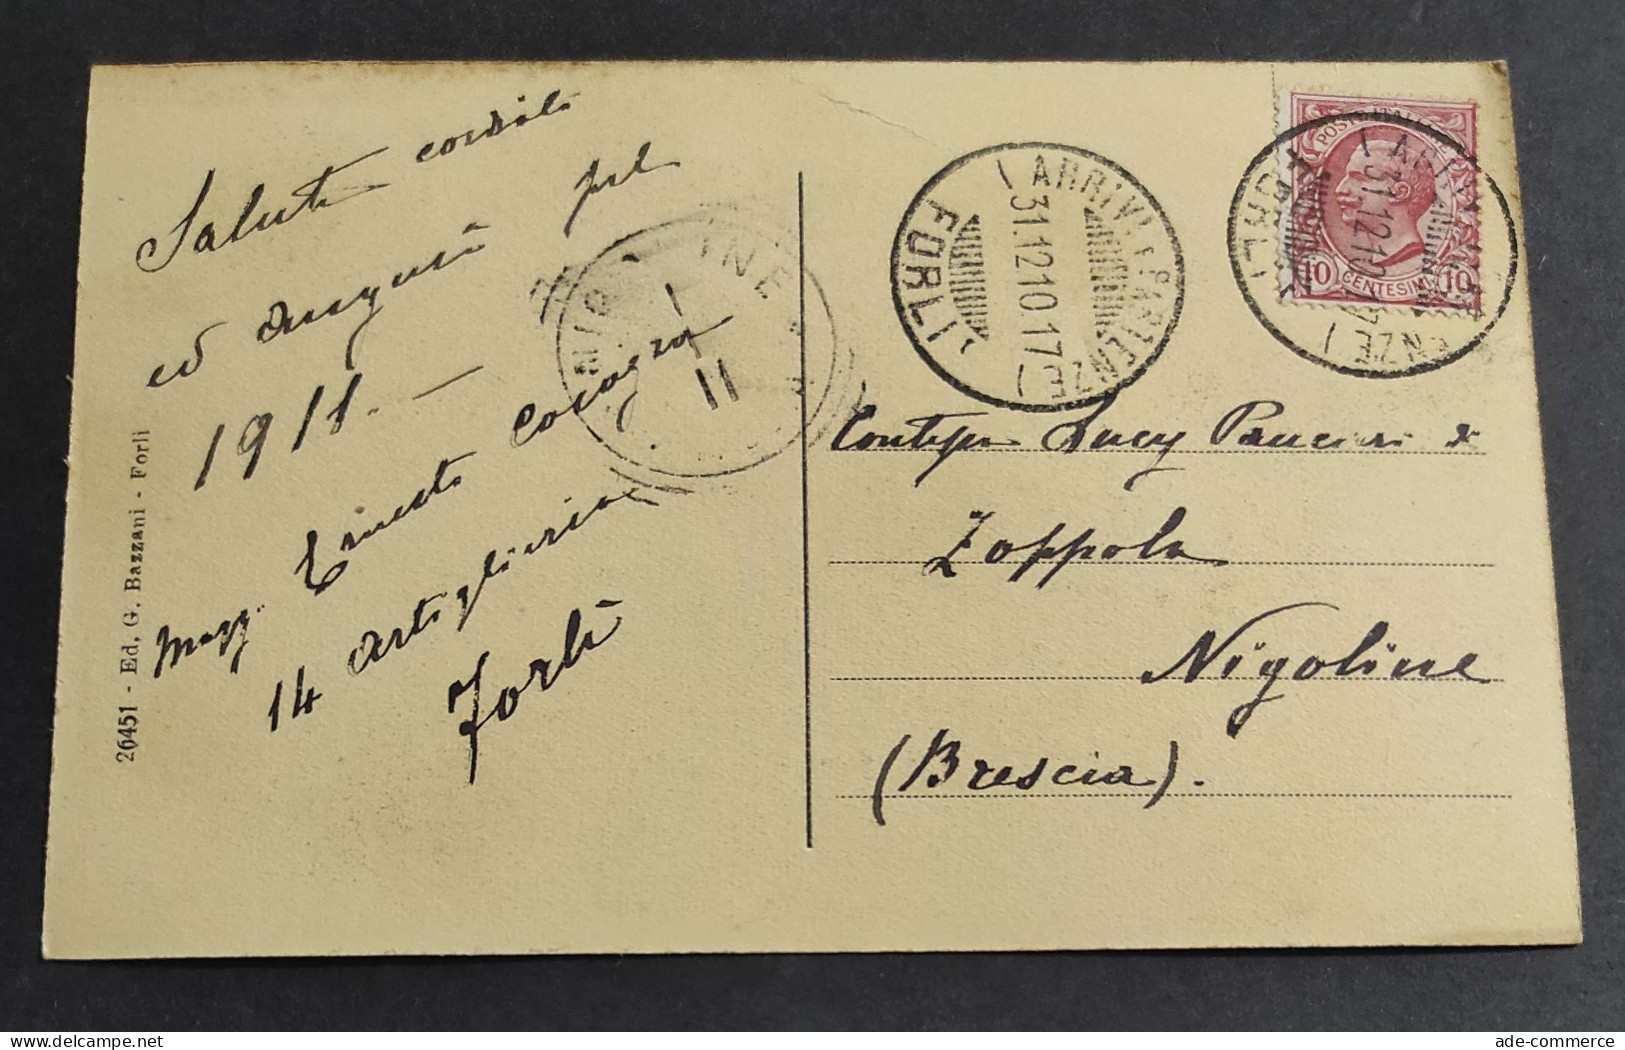 Saluti cordiali
ed auguri pel
1911. —
Magg. Ernesto
14 Artiglieria
Forlì
26451 - Ed. G. Bazzani - Forlì
NIGOLINE
1
11
FORLÌ
ARRIVI E PARTENZE
31.12.10.17
POSTE ITALIANE
10 CENTESIMI 10
FORLÌ
ARRIVI E PARTENZE
31.12.10.17
Contessa Lucy Panciera di
Zoppola
Nigoline
(Brescia).
delcampe.net
ade-commerce